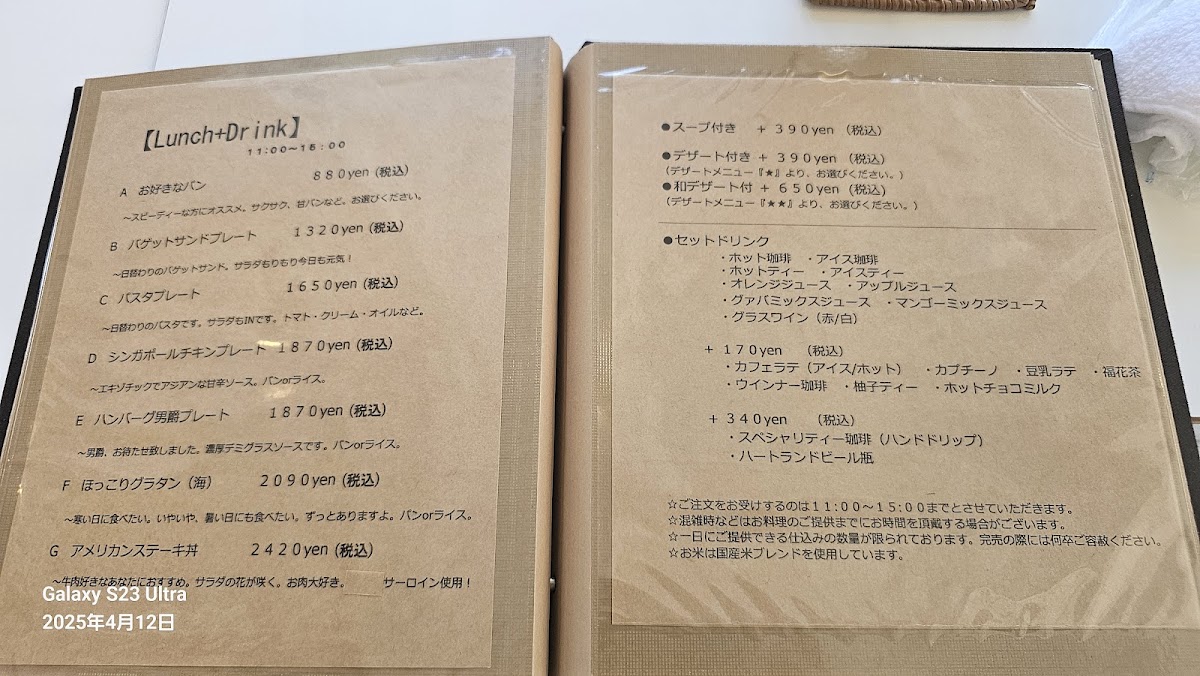 【Lunch+Drink】
11:00～15:00
A お好きなパン 880yen (税込)
～スピーディーな方にオススメ。サクサク、甘パンなど。お選びください。
B バゲットサンドプレート 1320yen (税込)
～日替わりのバゲットサンド。サラダもりもり今日も元気！
C パスタプレート 1650yen (税込)
～日替わりのパスタです。サラダもINです。トマト・クリーム・オイルなど。
D シンガポールチキンプレート 1870yen (税込)
～エキゾチックでアジアンな甘辛ソース。パンorライス。
E ハンバーグ男爵プレート 1870yen (税込)
～男爵、お待たせ致しました。濃厚デミグラスソースです。パンorライス。
F ほっこりグラタン（海） 2090yen (税込)
～寒い日に食べたい。いやいや、暑い日にも食べたい。ずっとありますよ。パンorライス。
G アメリカンステーキ丼 2420yen (税込)
～牛肉好きなあなたにおすすめ。サラダの花が咲く。お肉大好き。 サーロイン使用！
Galaxy S23 Ultra
2025年4月12日
●スープ付き ＋390yen（税込）
●デザート付き＋390yen（税込）
（デザートメニュー『★』より、お選びください。）
●和デザート付＋650yen（税込）
（デザートメニュー『★★』より、お選びください。）
●セットドリンク
・ホット珈琲 ・アイス珈琲
・ホットティー ・アイスティー
・オレンジジュース ・アップルジュース
・グァバミックスジュース ・マンゴーミックスジュース
・グラスワイン（赤/白）
＋170yen （税込）
・カフェラテ（アイス/ホット） ・カプチーノ ・豆乳ラテ ・福花茶
・ウインナー珈琲 ・柚子ティー ・ホットチョコミルク
＋340yen （税込）
・スペシャリティー珈琲（ハンドドリップ）
・ハートランドビール瓶
☆ご注文をお受けするのは11:00～15:00までとさせていただきます。
☆混雑時などはお料理のご提供までにお時間を頂戴する場合がございます。
☆一日にご提供できる仕込みの数量が限られております。完売の際には何卒ご容赦ください。
☆お米は国産米ブレンドを使用しています。